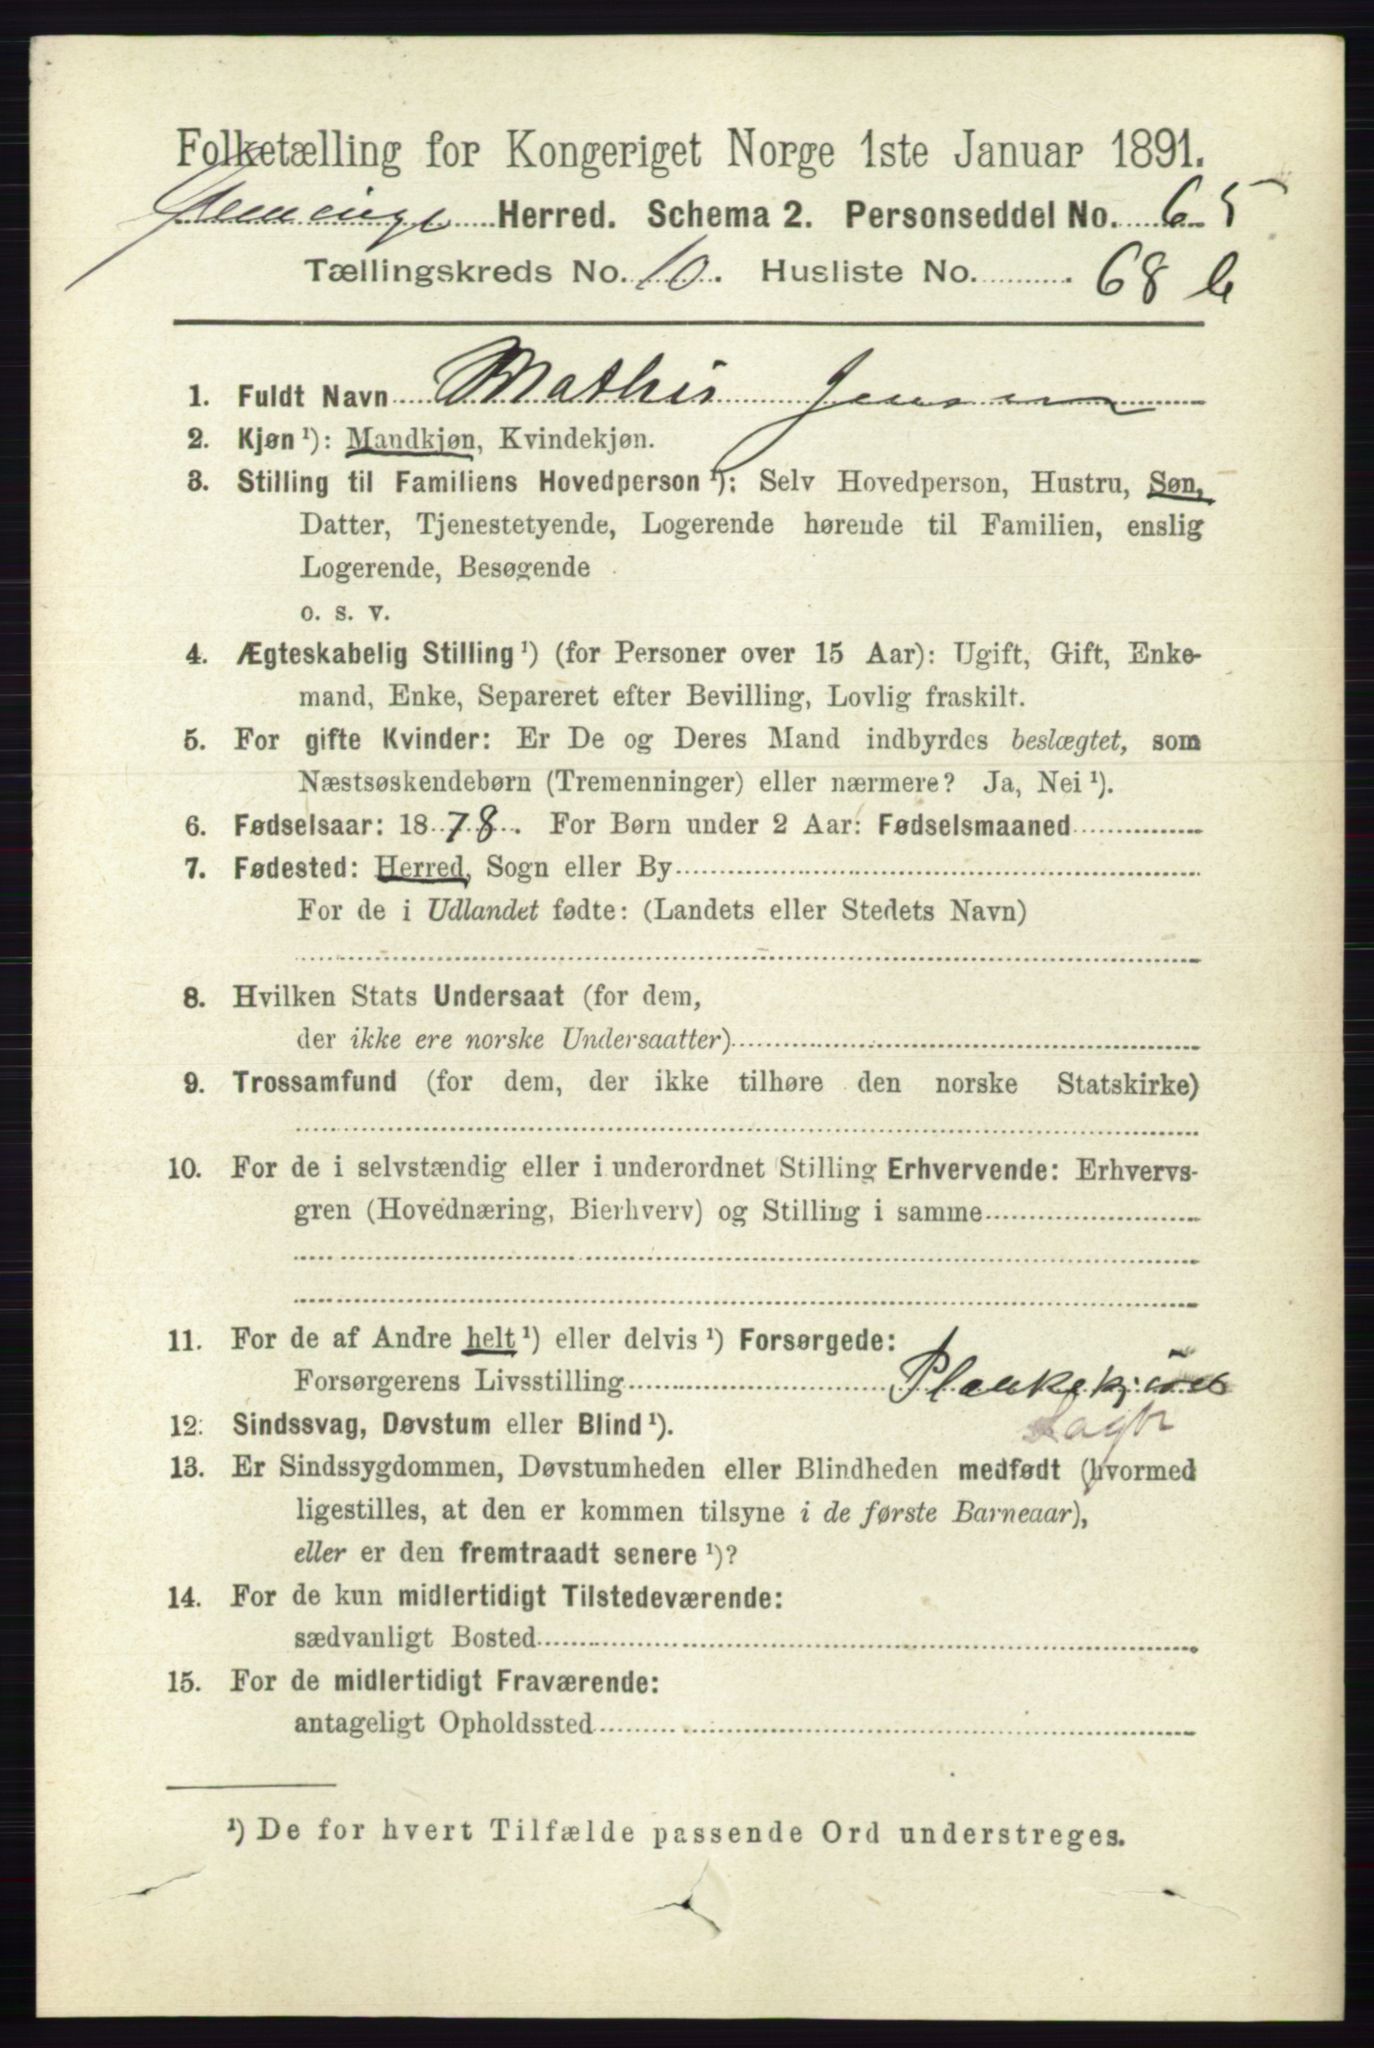 Folketælling for Kongeriget Norge 1ste Januar 1891.
Glemminge Herred. Schema 2. Personseddel No. 65
Tællingskreds No. 10. Husliste No. 68 b
1. Fuldt Navn Mathis Jensen
2. Kjøn ¹): Mandkjøn, Kvindekjøn.
3. Stilling til Familiens Hovedperson ¹): Selv Hovedperson, Hustru, Søn,
Datter, Tjenestetyende, Logerende hørende til Familien, enslig
Logerende, Besøgende
o. s. v.
4. Ægteskabelig Stilling ¹) (for Personer over 15 Aar): Ugift, Gift, Enke-
mand, Enke, Separeret efter Bevilling, Lovlig fraskilt.
5. For gifte Kvinder: Er De og Deres Mand indbyrdes beslægtet, som
Næstsøskendebørn (Tremenninger) eller nærmere? Ja, Nei ¹).
6. Fødselsaar: 1878. For Børn under 2 Aar: Fødselsmaaned
7. Fødested: Herred, Sogn eller By
For de i Udlandet fødte: (Landets eller Stedets Navn)
8. Hvilken Stats Undersaat (for dem,
der ikke ere norske Undersaatter)
9. Trossamfund (for dem, der ikke tilhøre den norske Statskirke)
10. For de i selvstændig eller i underordnet Stilling Erhvervende: Erhvervs-
gren (Hovednæring, Bierhverv) og Stilling i samme
11. For de af Andre helt ¹) eller delvis ¹) Forsørgede:
Forsørgerens Livsstilling Plankekjører
12. Sindssvag, Døvstum eller Blind ¹).
13. Er Sindssygdommen, Døvstumheden eller Blindheden medfødt (hvormed
ligestilles, at den er kommen tilsyne i de første Barneaar),
eller er den fremtraadt senere ¹)?
14. For de kun midlertidigt Tilstedeværende:
sædvanligt Bosted
15. For de midlertidigt Fraværende:
antageligt Opholdssted
¹) De for hvert Tilfælde passende Ord understreges.